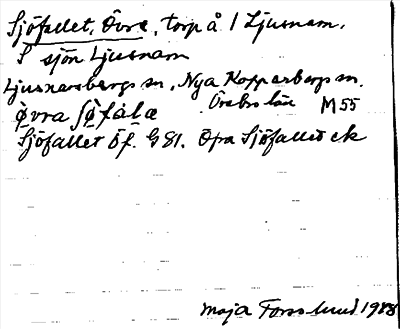 Sjöfallet, Övre, torp å 1 Ljusnam.
S sjön Ljusnam
Ljusnarsbergs sn, Nya Kopparbergs sn.
Örebro län M55
Sjöfallet Öf. G 81. Öfra Sjöfallet ek
Maja Forslund 1988